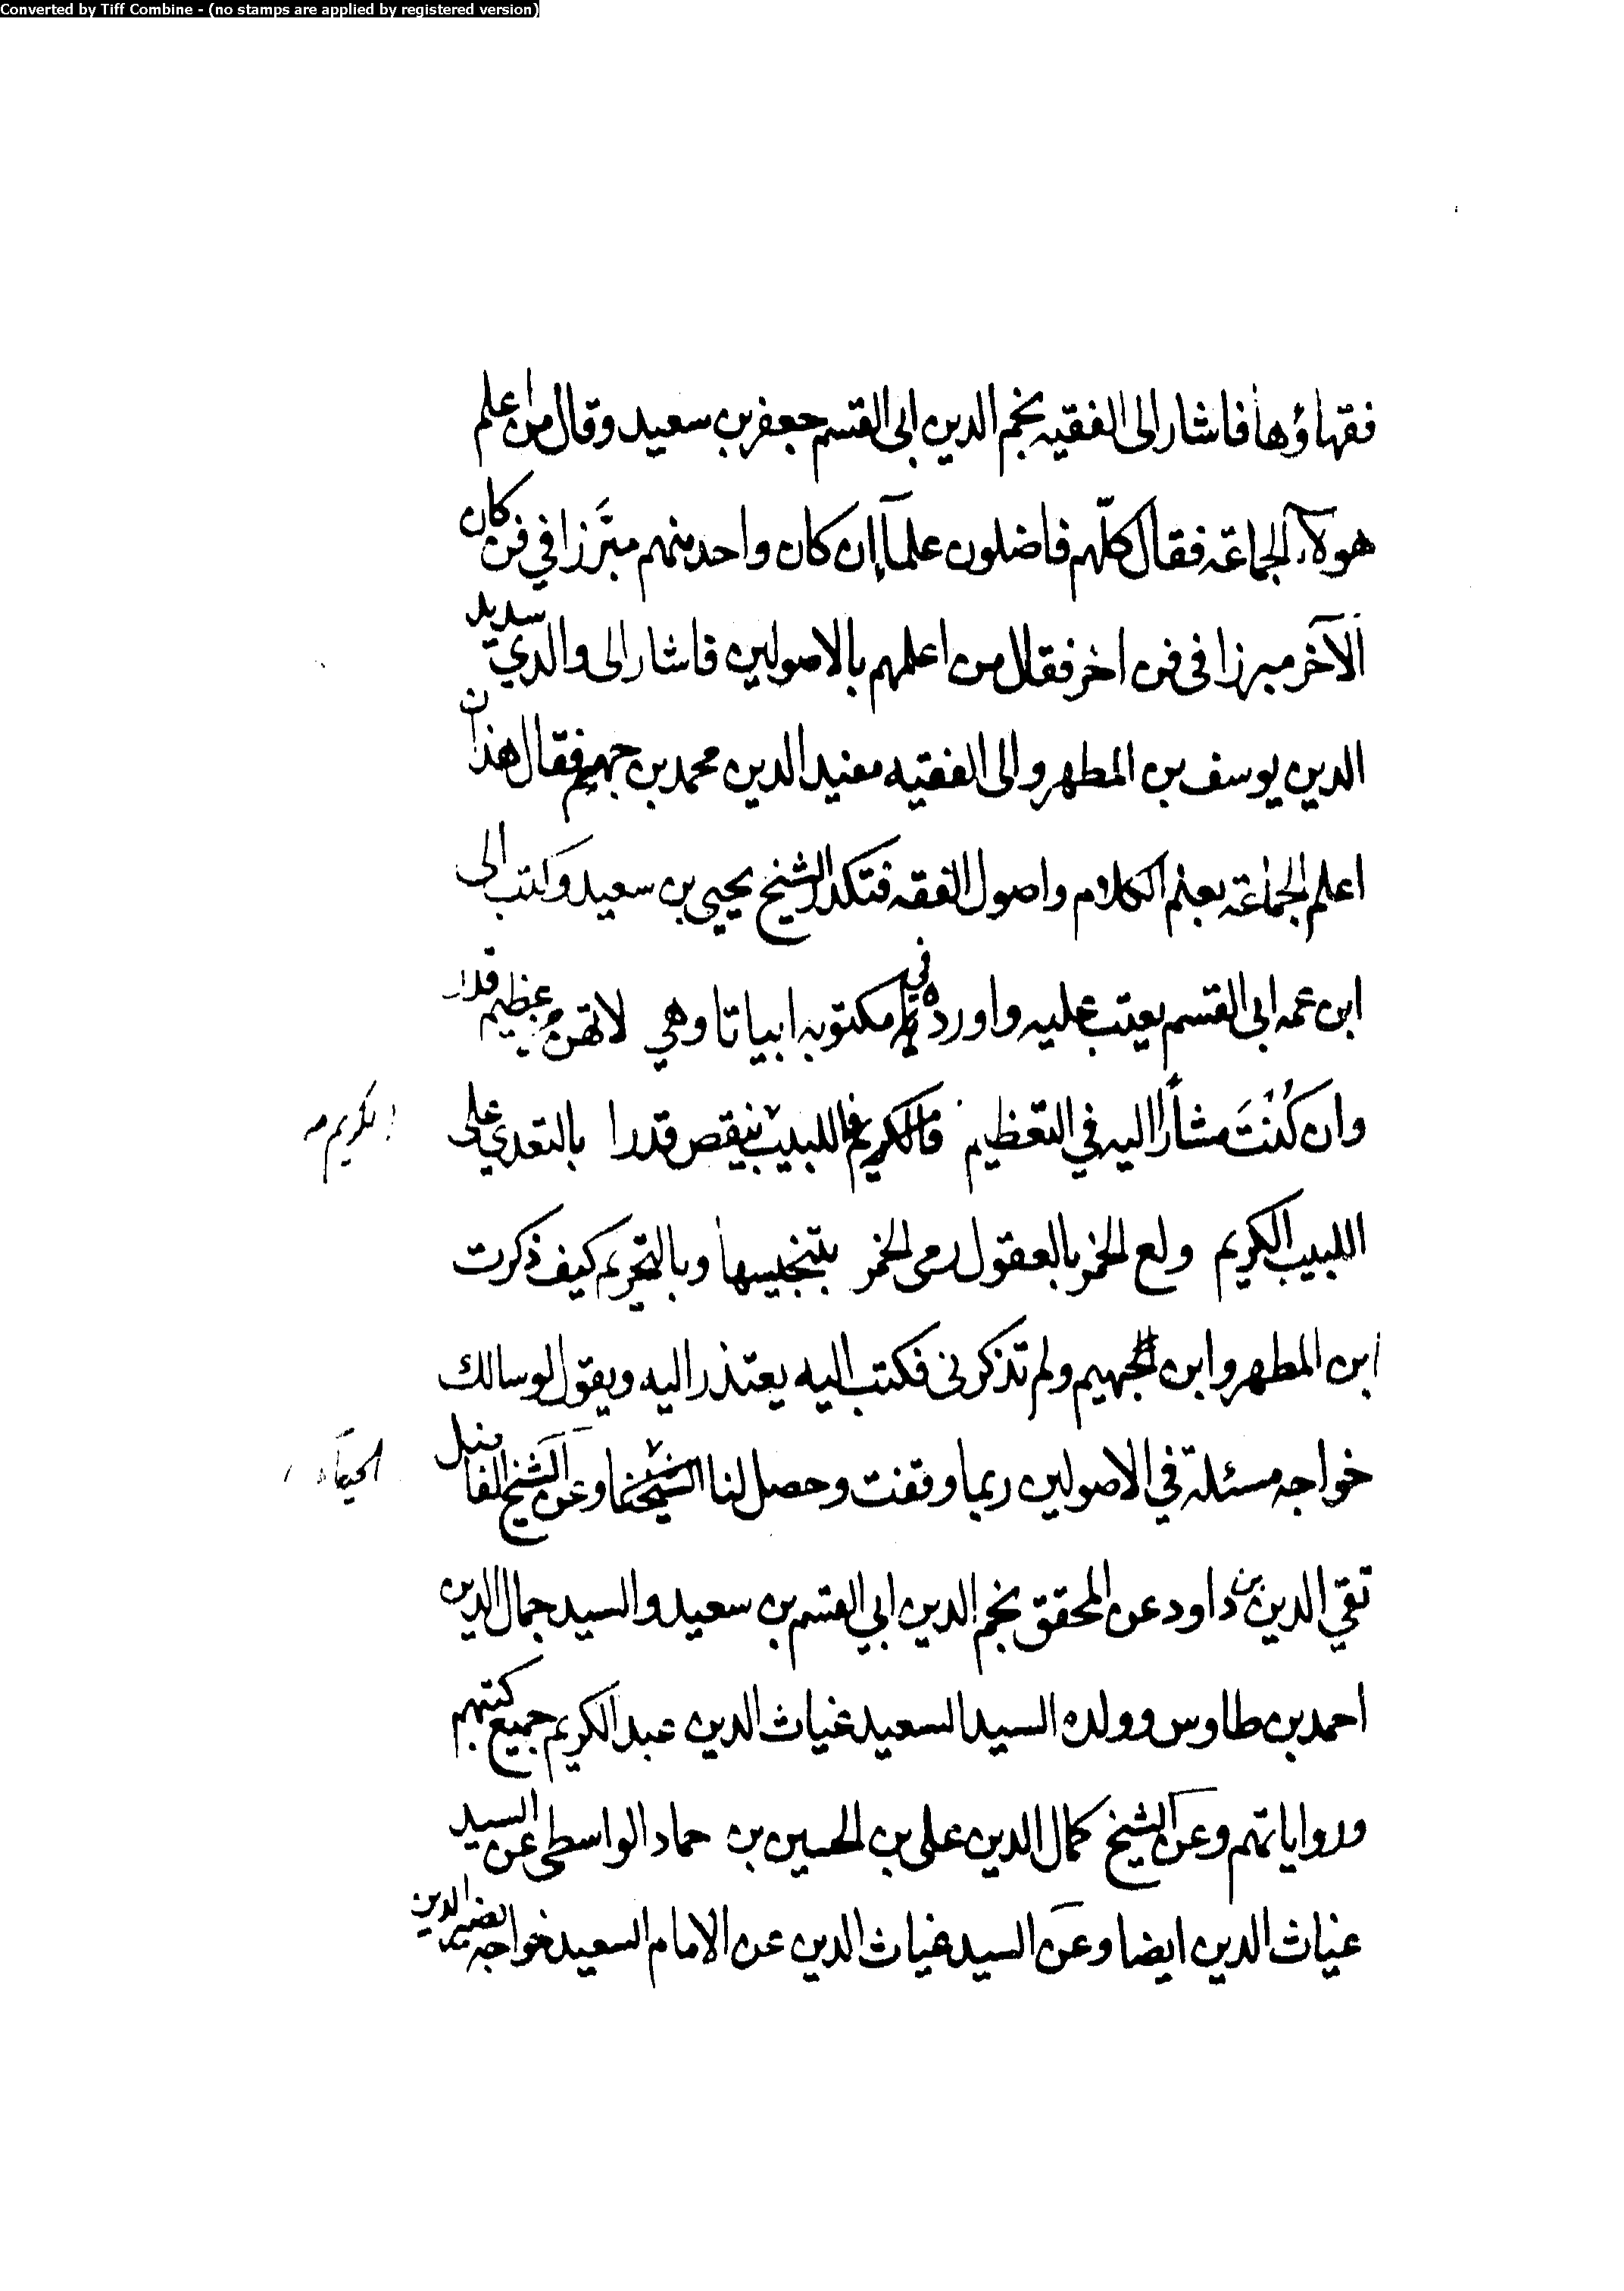 Converted by Tiff Combine - (no stamps are applied by registered version)
فقهاؤها فاشار الى الفقيه نجم الدين ابى القسم جعفر بن سعيد وقال من اعلم
هولآء الجماعة فقال كلّهم فاضلون علمآء ان كان واحد منهم مبَّرزا في فن كان
الآخر مبرزا فى فن اخر فقال من اعلمهم بالاصولين فاشار الى والدي سديد
الدين يوسف بن المطهر والى الفقيه مفيد الدين محمد بن جهيم فقال هذان
اعلم الجماعة بعلم الكلام واصول الفقه فتكدر الشيخ يحيى بن سعيد وكتب الى
ابن عمه ابى القسم يعتب عليه واورده في مكتوبه ابياتا وهي لا تهن عظيم قدر
وان كُنْتَ مشاراً اليه في التعظيم فاللبيب ينقص قدرا بالتعدي على
الكريم
اللبيب الكريم ولع الخمر بالعقول رمى الخمر بتنجيسها وبالتحريم كيف ذكرت
ابن المطهر وابن الجهيم ولم تذكرنى فكتب اليه يعتذر اليه ويقول لو سالك
خواجه مسئلة في الاصولين ربما وقفت وحصل لنا وعن الشيخ الفاضل
الحياء
تقي الدين بن داود عن المحقق نجم الدين ابي القسم بن سعيد والسيد جمال الدين
احمد بن طاوس وولده السيد السعيد غياث الدين عبد الكريم جميع كتبهم
ورواياتهم وعن الشيخ كمال الدين على بن الحسين بن حماد الواسطى عن السيد
غياث الدين ايضا وعن السيد غياث الدين عن الامام السعيد خواجه نصير الدين